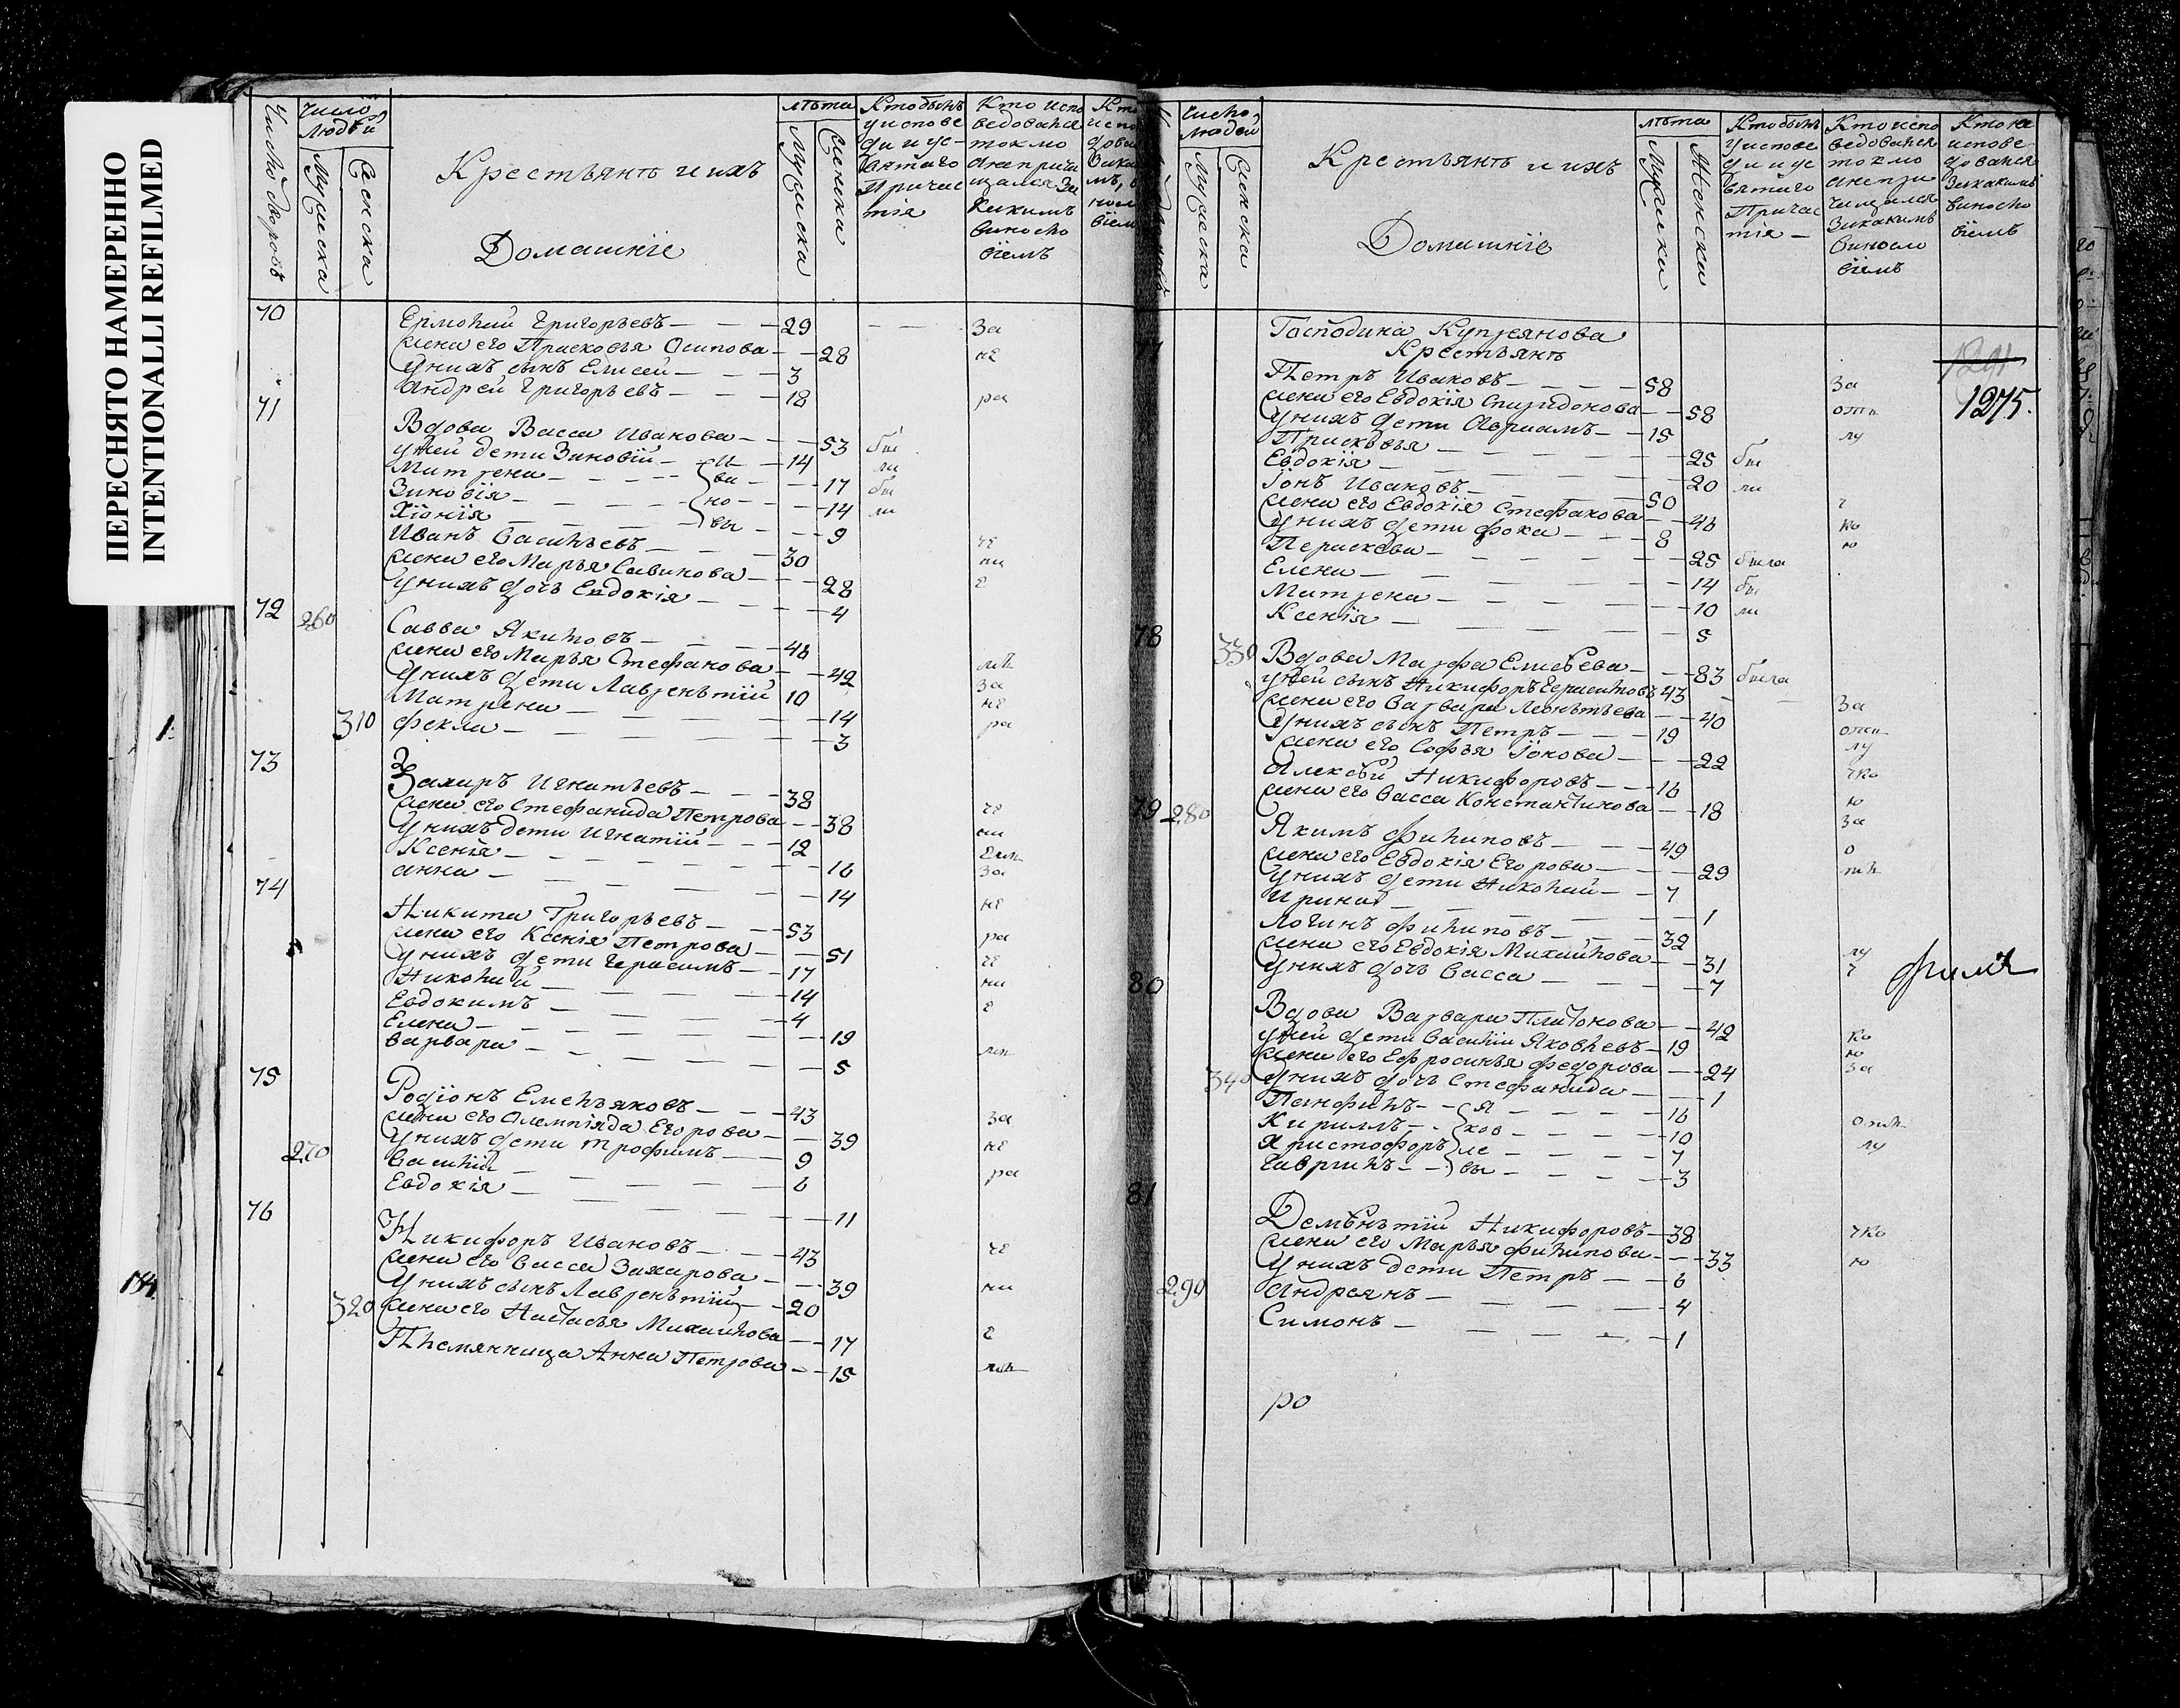 ПЕРЕСНЯТО НАМЕРЕННО
INTENTIONALLI REFILMED
Число дворовъ
Число людей
Мужеска
Женска
Крестьянъ и ихъ
Домашнїе
лѣта
Мужеска
Женска
Кто былъ
у испове
ди и свя
таго
Причас
тїя
Кто испо
ведовался
токмо
а не прича
щался за
какимъ
винosло
вїемъ
70
Ермолай Григорьевъ 29 за
жена его Прасковья Осипова 28 не
у нихъ сынъ Елисей 3
Андрей Григорьевъ 18 ра
71
Вдова Васса Иванова 53 бы
у ней дети Зиновїй 14 ли
Матрена 17 бы
Зиновїя 14 ли
Хїонїя 9
Иванъ Васильевъ 30 че
жена его Марья Савинова 28 ни
у нихъ дочь Евдокїя 4 е
72 260
Савва Якимовъ 46
жена его Марья Стефанова 42 мъ
у нихъ дети Лаврентїй 10 за
Матрена 14 не
310 Фекла 3 ра
73
Захаръ Игнатьевъ 38
жена его Стефанида Петрова 38 че
у нихъ дети Игнатїй 12 ни
Ксенїя 16 емъ
Анна 14 за
74
Никита Григорьевъ 53 не
жена его Ксенїя Петрова 51 ра
у нихъ дети Герасимъ 17 че
Николай 14 ни
Евдокимъ 4 е
Елена 19
Варвара 5 мъ
75
Родїонъ Емельяновъ 43
жена его Олемпїяда Егорова 39 за
у нихъ дети Трофимъ 9 не
270 Василїй 6 ра
Евдокїя 11
76
Никифоръ Ивановъ 43 че
жена его Васса Захарова 39 ни
у нихъ сынъ Лаврентїй 20
320 жена его Настасья Михайлова 17 е
Племянница Анна Петрова 15 мъ
Число людей
Мужеска
Женска
Крестьянъ и ихъ
Домашнїе
лѣта
Мужеска
Женска
Кто былъ
у испове
ди и свя
таго
Причас
тїя
Кто испо
ведовался
токмо
а не при
чащался
за какимъ
винosло
вїемъ
Кто не
испове
довался
за какимъ
винosло
вїемъ
Господина Купреянова
Крестьянъ
1275.
Петръ Ивановъ 58 за
жена его Евдокїя Спиридонова 58 отъ
у нихъ дети Авраамъ 15 лу
Прасковья 25 бы
Евдокїя 20 ли
Їонъ Ивановъ 50 ч
жена его Евдокїя Стефанова 46 ко
у нихъ дети Фока 8 ю
Параскева 25 была
Елена 14 бы
Матрена 10 ли
Ксенїя 5
78
330 Вдова Марфа Елисѣева 83 была
у ней сынъ Никифоръ Герасимовъ 43
жена его Варвара Леонтьева 40 за
у нихъ сынъ Петръ 19 отъ
жена его Софья Їонова 22 лу
Алексѣй Никифоровъ 16 чко
жена его Васса Константинова 18 ю
79 280
Якимъ Филиповъ 49 за
жена его Евдокїя Егорова 29 о
у нихъ дети Николай 7 тъ
Ирина 1
Логинъ Филиповъ 32
жена его Евдокїя Михайлова 31 лу
у нихъ дочь Васса 7 ч
80
Вдова Варвара Платонова 42
у ней дети Василїй Яковлевъ 19 ко
жена его Ефросинья Федорова 24 ю
340 у нихъ дочь Стефанида 1 за
Панфилъ 16
Кирилъ 10 отъ
Христофоръ 7 лу
Гаврилъ 3
81
Дементїй Никифоровъ 38 чко
жена его Марья Филипова 33 ю
у нихъ дети Петръ 6
290 Андреянъ 4
Симонъ 1
ро